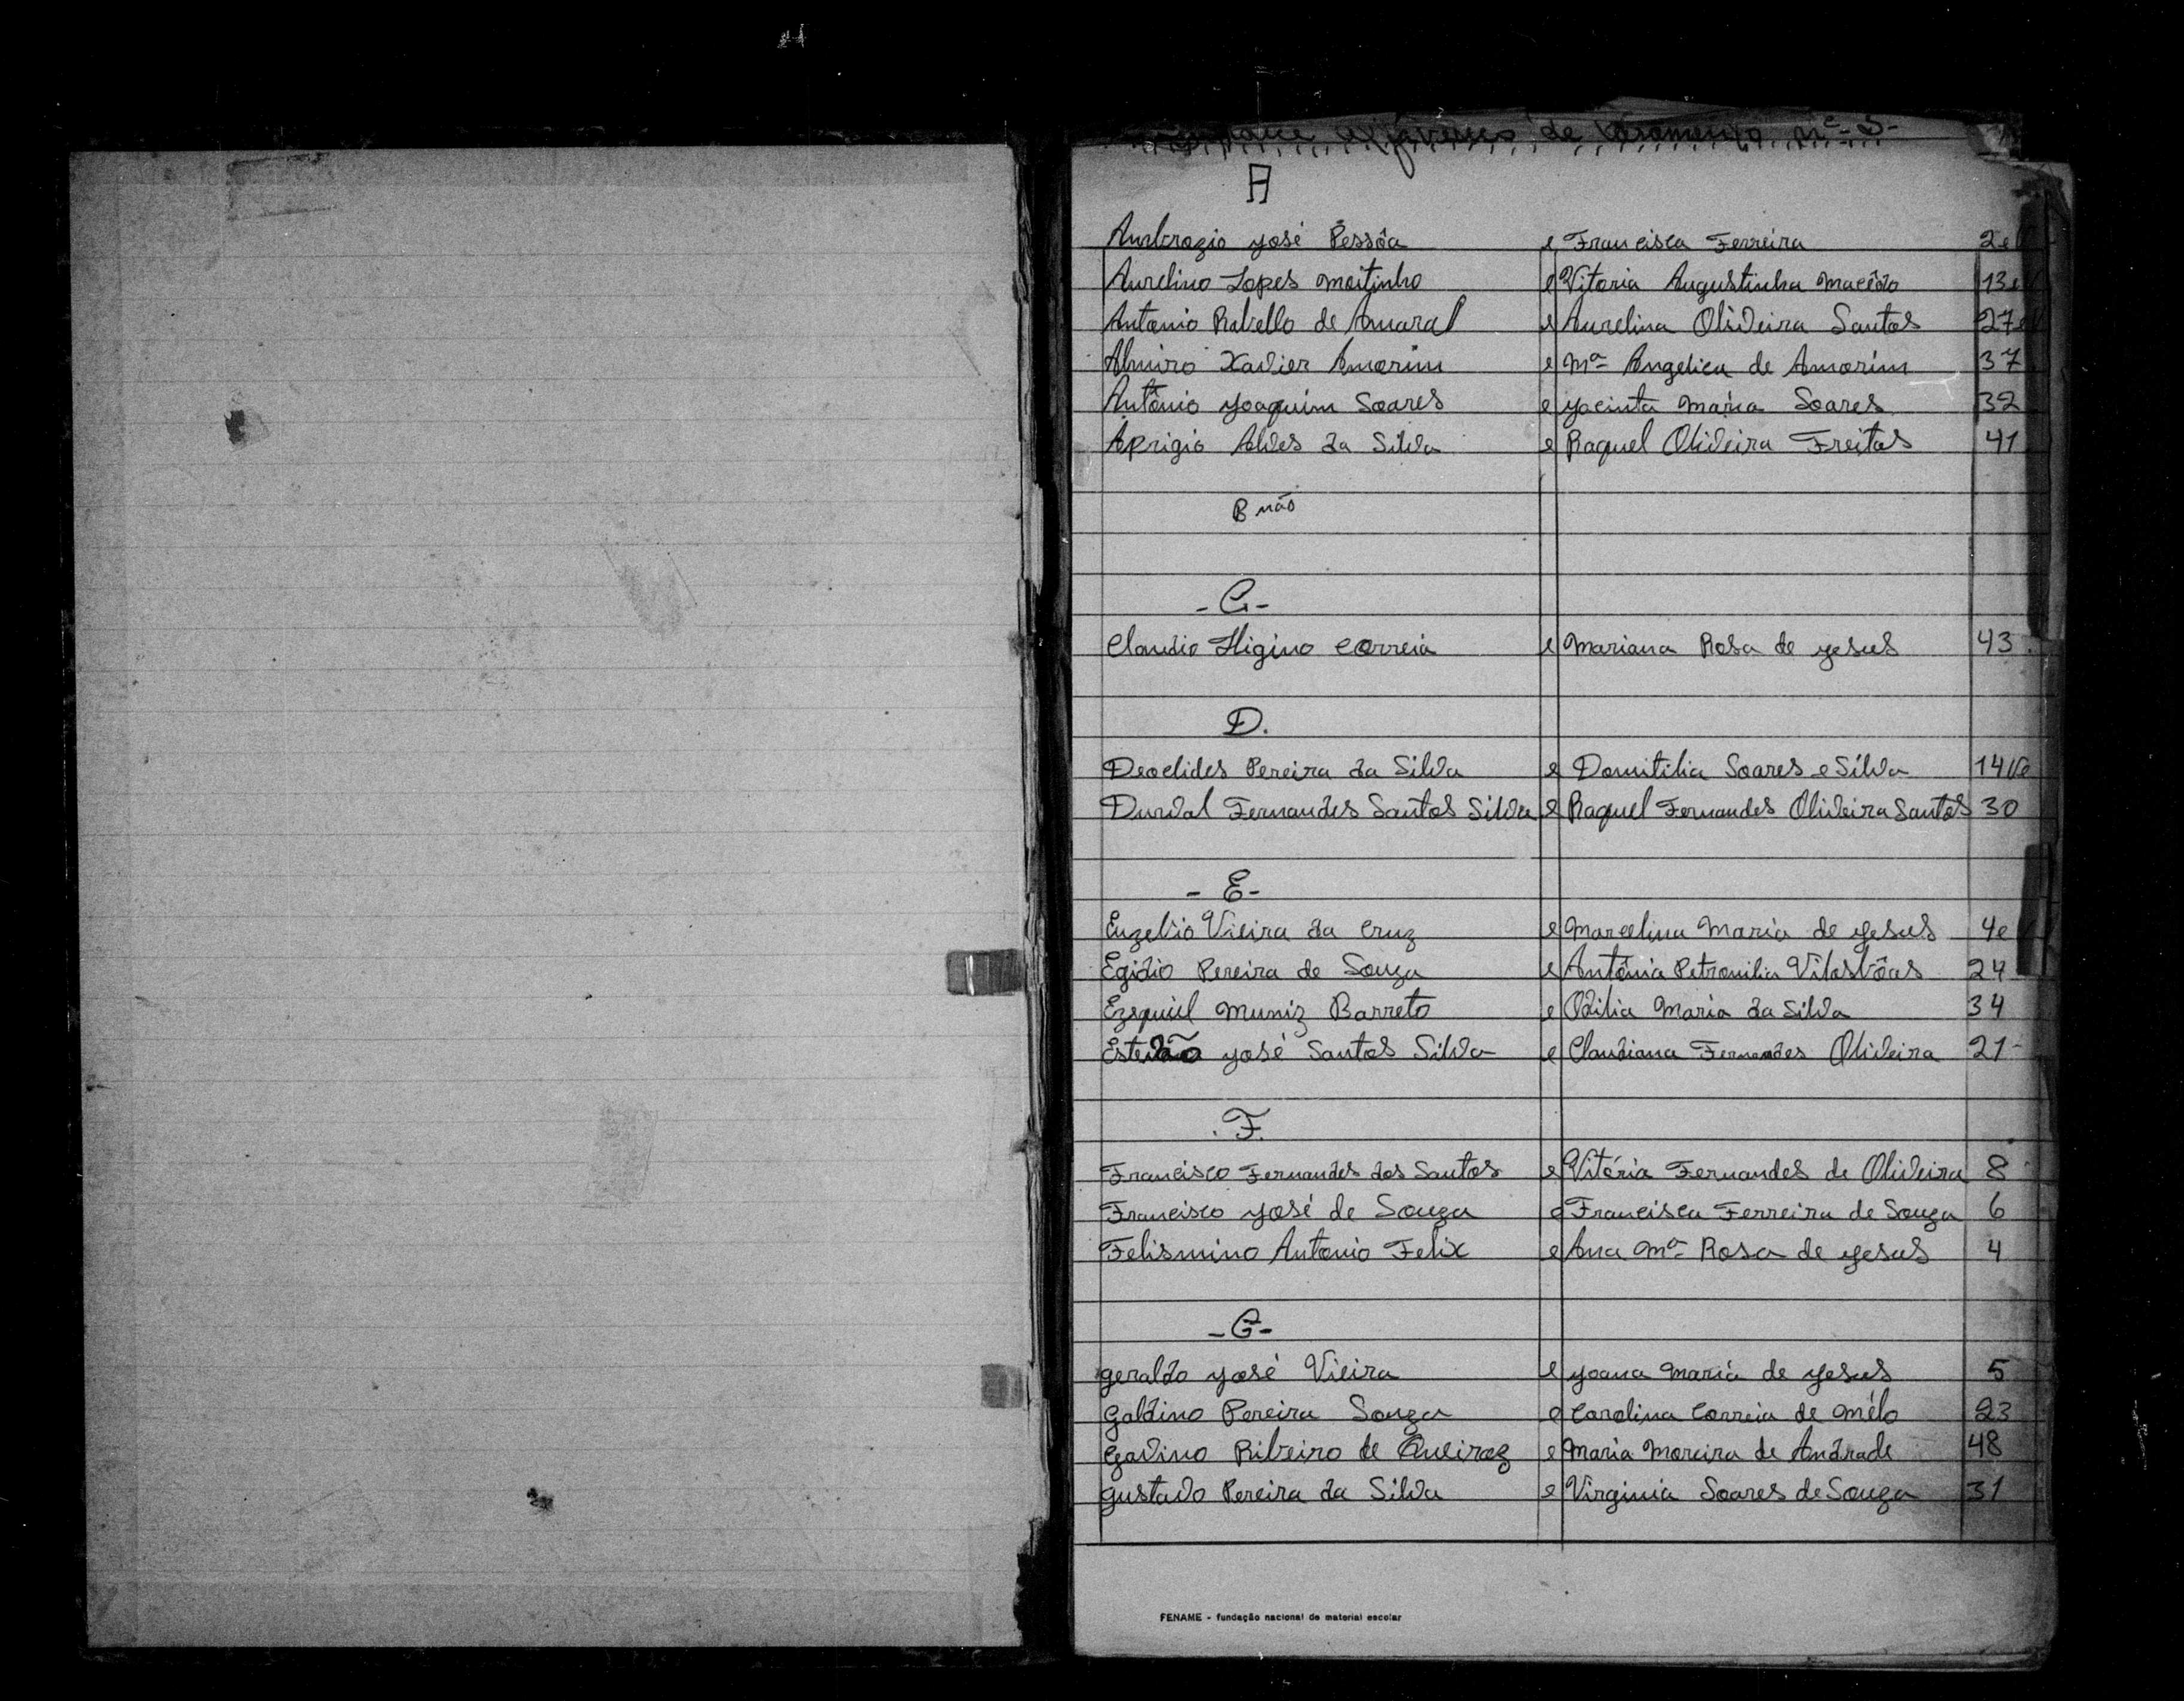 de Casamento nº 5-
A
Ambrozio José Pessôa e Francisca Ferreira 2e
Aurelino Lopes Moitinho e Vitoria Augustinha Macêdo 13e
Antonio Rabello de Amaral e Aurelina Oliveira Santos 27e
Almiro Xavier Amorim e Mª Angelica de Amorim 37
Antônio Joaquim Soares e Jacinta Maria Soares 32
Aprigio Alves da Silva e Raquel Oliveira Freitas 41
B não
- C -
Claudio Higino Correia e Mariana Rosa de Jesus 43
D.
Deoclides Pereira da Silva e Domitilia Soares e Silva 14Ve
Durval Fernandes Santos Silva e Raquel Fernandes Oliveira Santos 30
- E -
Euzebio Vieira da Cruz e Marcelina Maria de Jesus 4e
Egidio Pereira de Souza e Antônia Petronilia Vilasbôas 24
Ezequiel Muniz Barreto e Odilia Maria da Silva 34
Estevão José Santos Silva e Claudiana Fernandes Oliveira 21
. F.
Francisco Fernandes dos Santos e Vitória Fernandes de Oliveira 8
Francisco José de Souza e Francisca Ferreira de Souza 6
Felismino Antonio Felix e Ana Mª Rosa de Jesus 4
- G -
Geraldo José Vieira e Joana Maria de Jesus 5
Galdino Pereira Souza e Carolina Correia de Mélo 23
Gavino Ribeiro de Queiroz e Maria Moreira de Andrade 48
Gustavo Pereira da Silva e Virginia Soares de Souza 31
FENAME - fundação nacional de material escolar